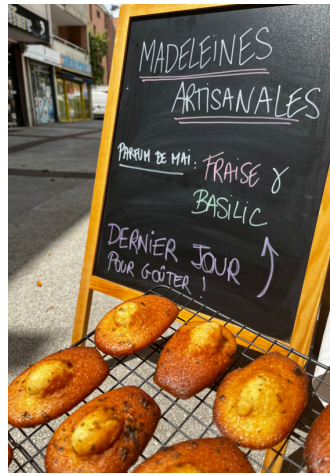 MADELEINES
ARTISANALES
PARFUM DE MAI : FRAISE &
BASILIC
DERNIER JOUR
POUR GOÛTER !